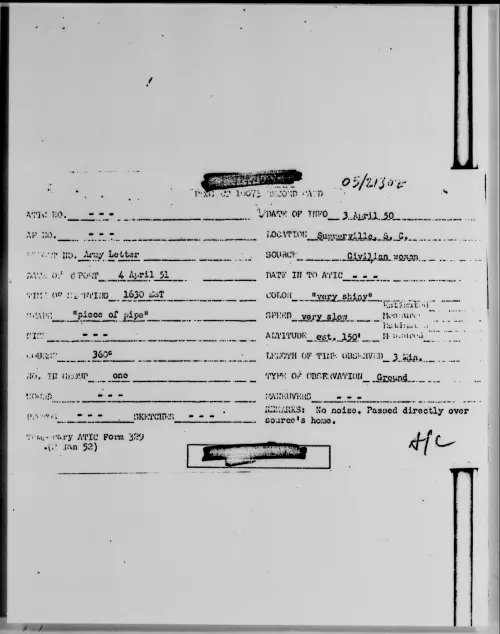 05/2130Z
PROJECT 10073 RECORD CARD
ATIC NO. - - - DATE OF INFO 3 April 50
AF NO. - - - LOCATION Summerville, S. C.
REPORT NO. Army Letter SOURCE Civilian woman
DATE OF REPORT 4 April 51 DATE IN TO ATIC - - -
TIME OF SIGHTING 1630 EST COLOR "very shiny"
SHAPE "piece of pipe" SPEED very slow Estimated Measured
SIZE - - - ALTITUDE est. 150' Estimated Measured
COURSE 360° LENGTH OF TIME OBSERVED 3 Min.
NO. IN GROUP one TYPE OF OBSERVATION Ground
SOUND - - - MANEUVERS - - -
PHOTOS - - - SKETCHES - - - REMARKS: No noise. Passed directly over
source's home.
Temporary ATIC Form 329
(2 Jan 52)
A/C